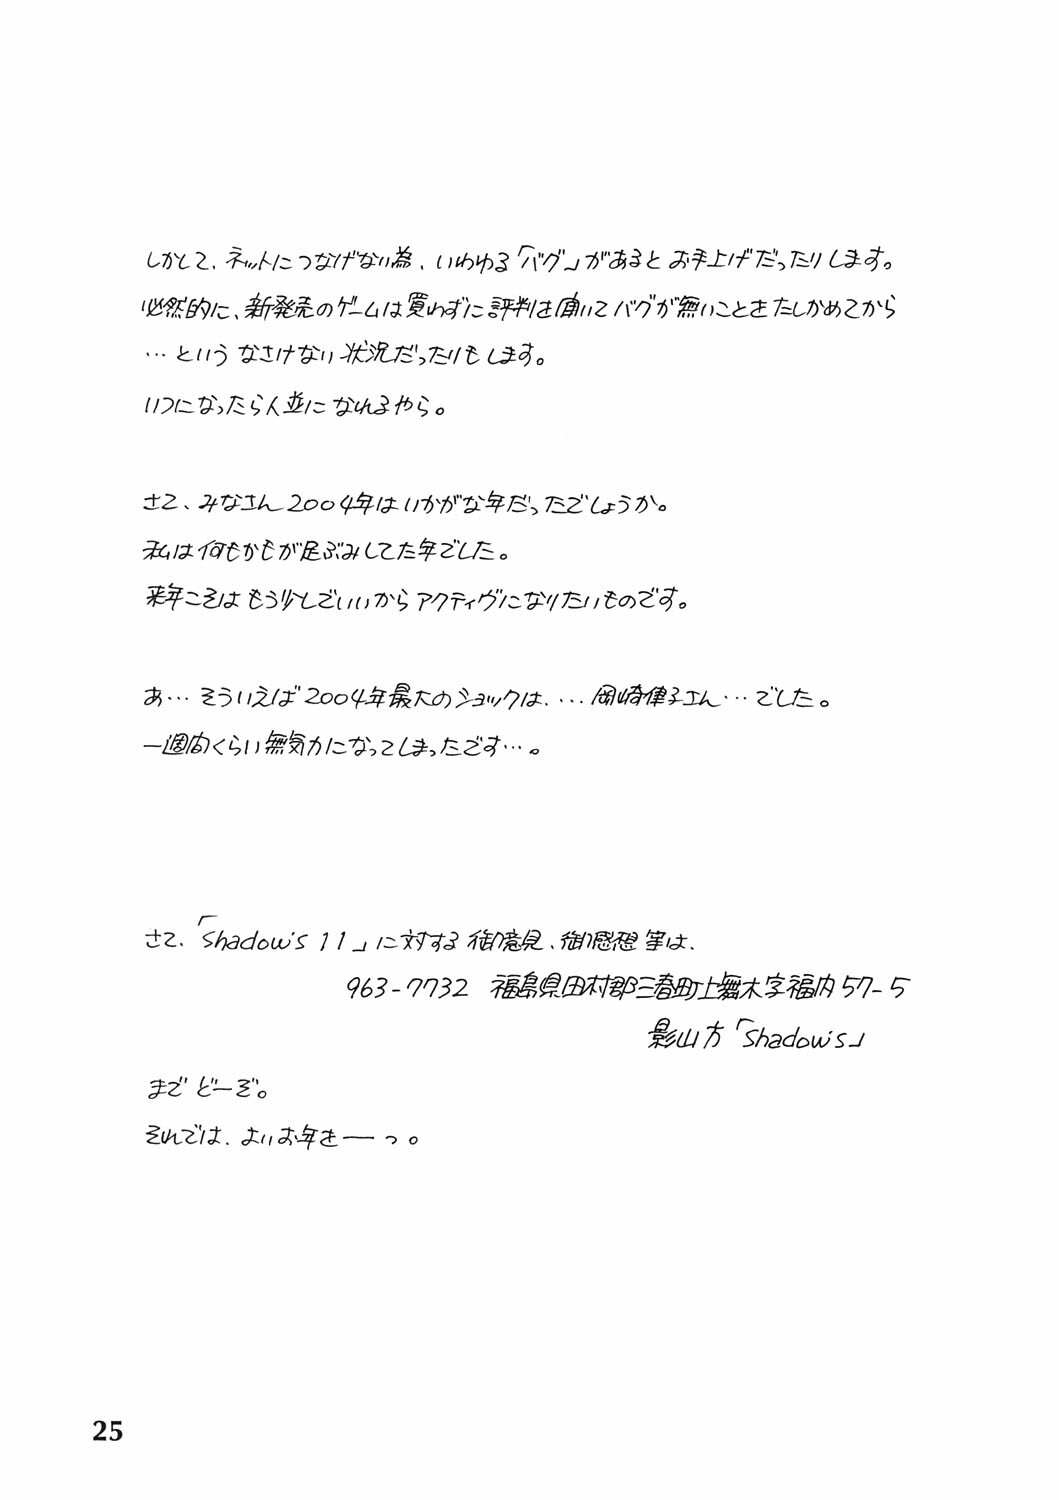 しかして、ネットにつなげない為、いわゆる「バグ」があるとお手上げだったりします。
必然的に、新発売のゲームは買わずに評判を聞いてバグが無いことをたしかめてから
…というなさけない状況だったりもします。
いつになったら人並になれるやら。
さて、みなさん2004年はいかがな年だったでしょうか。
私は何もかもが足ぶみしてた年でした。
来年こそはもう少しでいいからアクティヴになりたいものです。
あ…そういえば2004年最大のショックは、…岡崎律子さん…でした。
一週間くらい無気力になってしまったです…。
さて、「Shadow's 11」に対する御意見、御感想等は、
963-7732 福島県田村郡三春町上舞木字福内57-5
影山方「Shadow's」
までどーぞ。
それでは、よいお年をーっ。
25